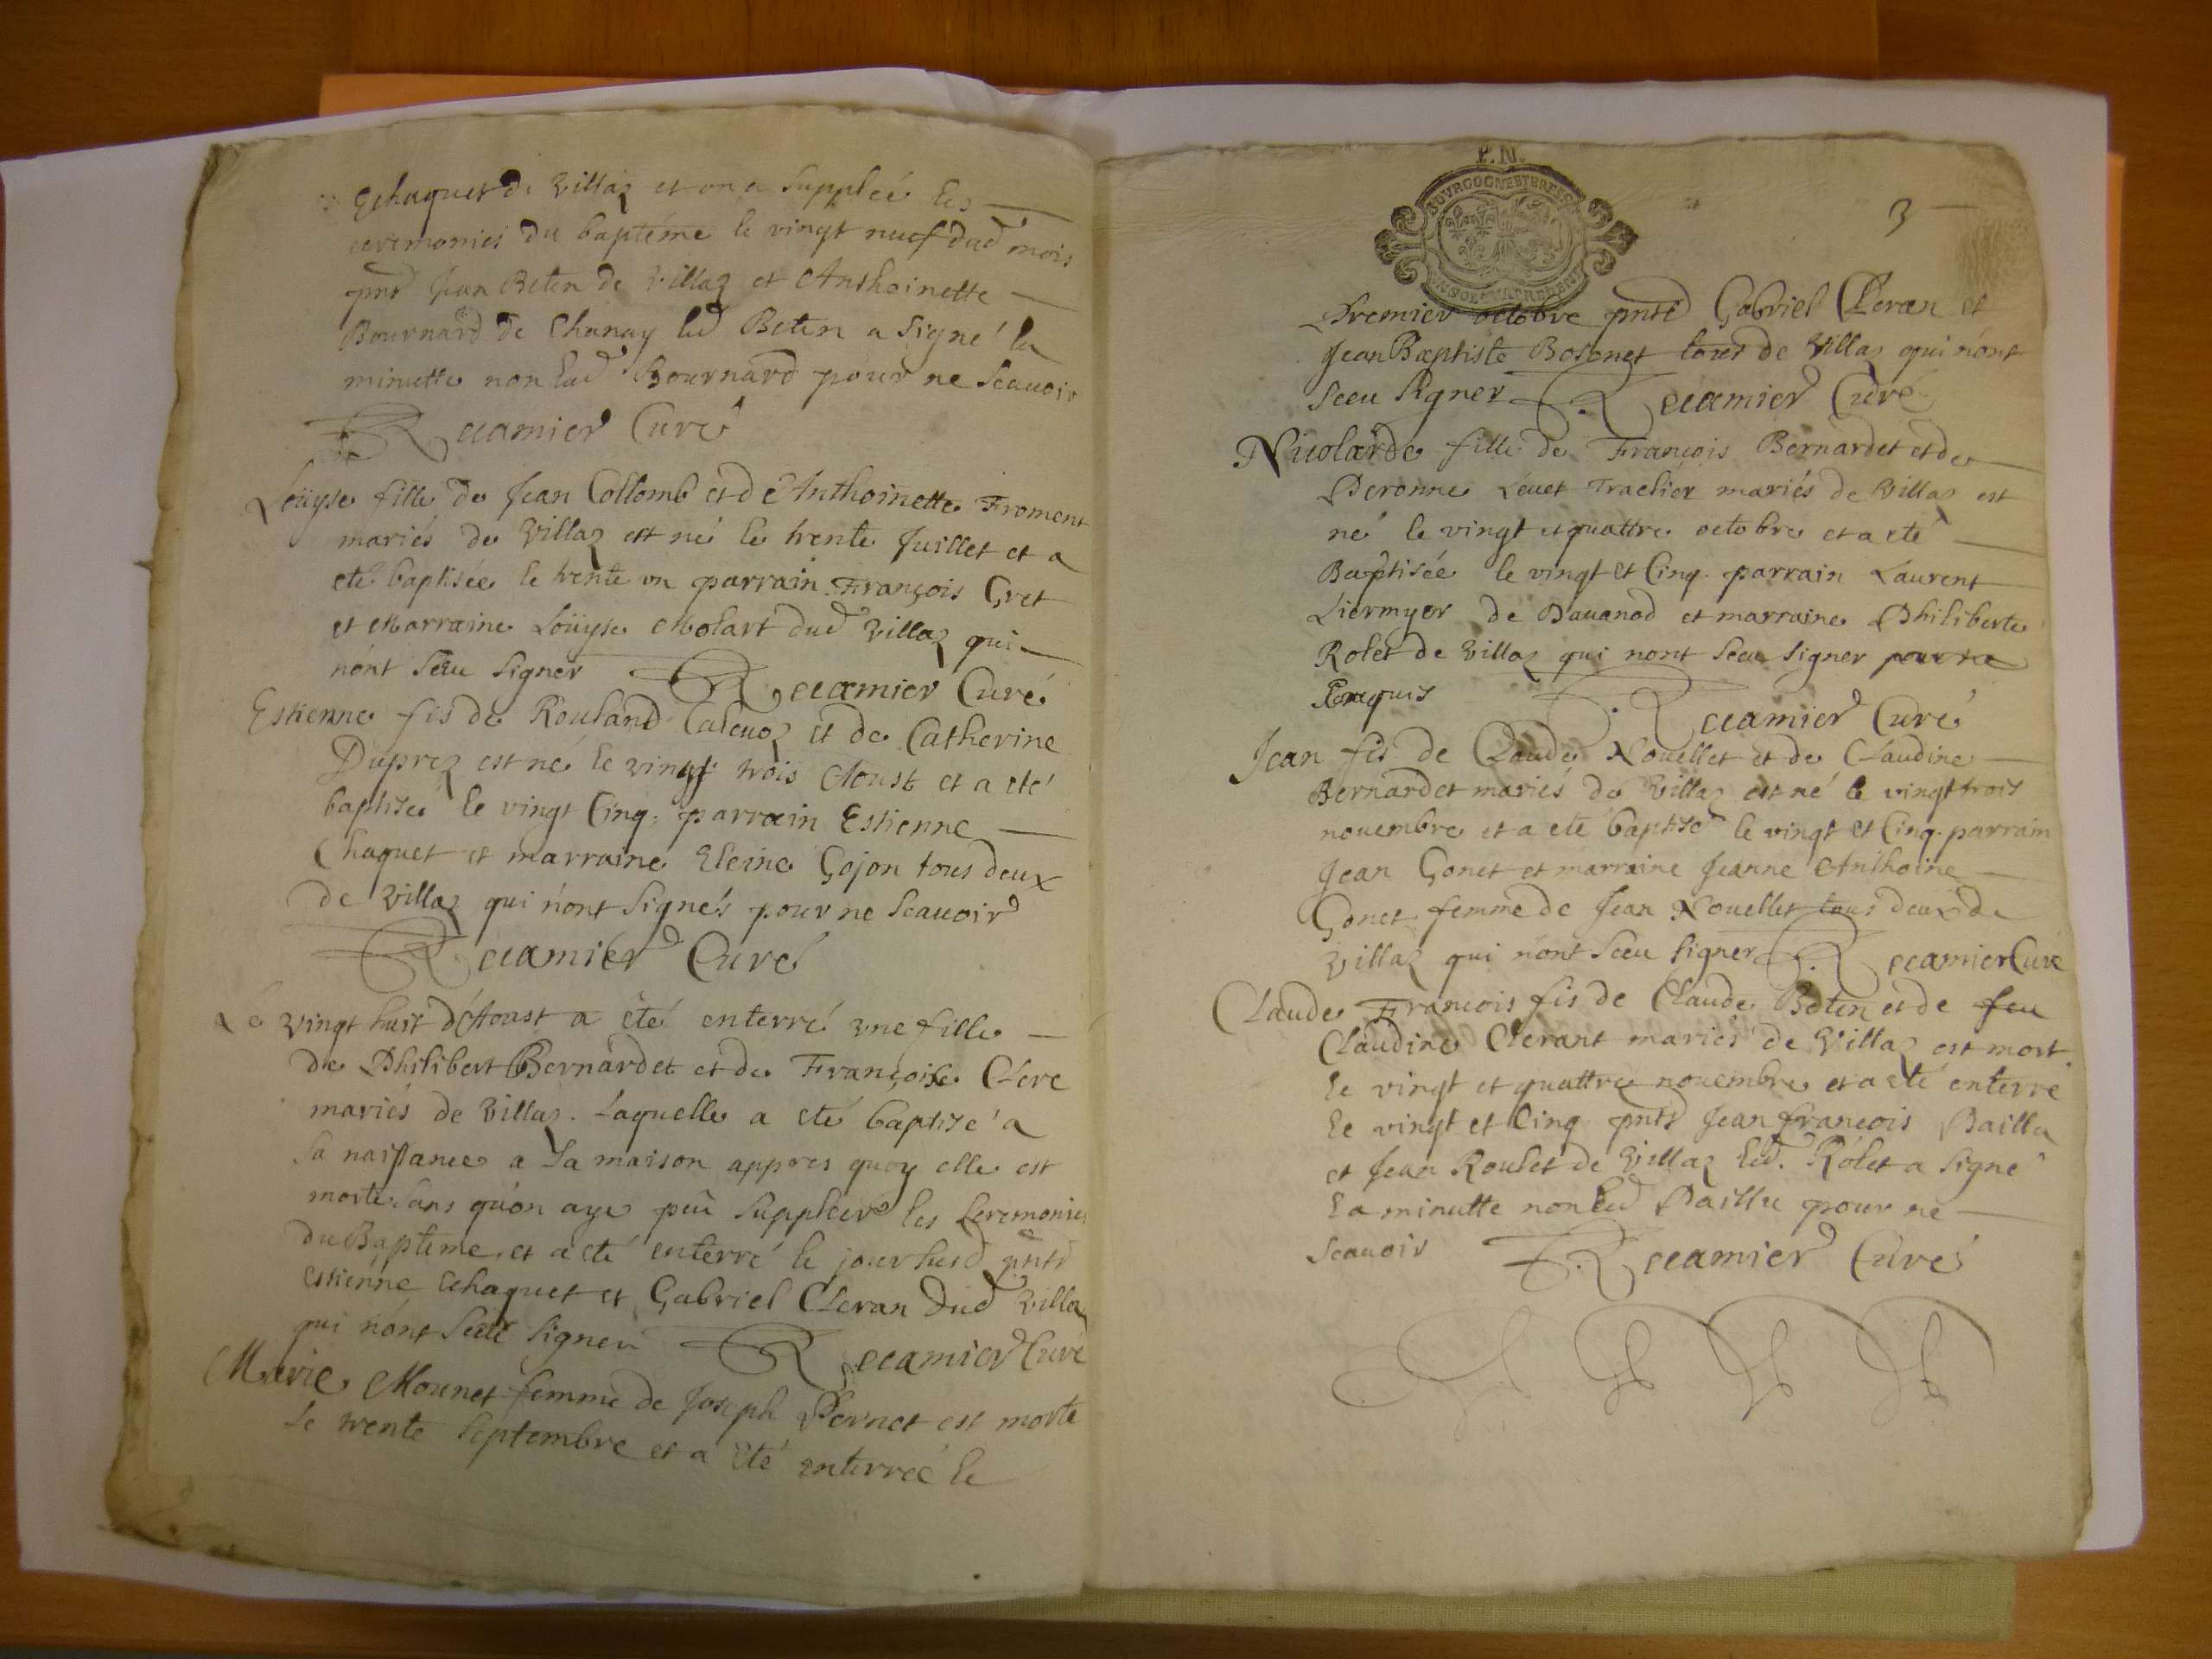 Echaquet de Villaz et on a Suppleé les
ceremonies du baptéme le vingt neuf dud mois
pnts Jean Beten de Villaz et Anthoinette
Bournard de Chanay led Beten a Signé la
minutte non lad Bournard pour ne Scauoir
Recamier Curé
Loüyse fille de Jean Collomb et de Anthoinette Froment
mariés de Villaz est né le trente Juillet et a
eté baptisée le trente un parrain François Gret
et Marraine Loüyse Molart dud Villaz qui
nónt Sceu Signer Recamier Curé
Estienne fis de Rouland Caleuoz et de Catherine
Duprez est né le vingt trois Aoust et a eté
baptiseé le vingt Cinq, parrain Estienne
Chaquet et marraine Eleine Gojon tous deux
de Villaz qui nónt Signés pour ne Scauoir
Recamier Curé
Le vingt huit d'Aoust a eté enterré vne fille
de Philibert Bernardet et de Françoise Clere
mariés de Villaz. Laquelle a eté baptisé a
Sa naissance a La maison appres quoy elle est
morte Sans qu'on aye peu Suppleer les Ceremonies
du Bapteme, et a eté enterré le jour susd pnts
Estienne Echaquet et Gabriel Cleran dud Villaz
qui nónt Sceu Signer Recamier Curé
Marie Mounet femme de Joseph Pernet est morte
le trente Septembre et a eté enterreé le
P.N.
BOVRGOGNE ET BRESSE
3
Premier octobre pnts Gabriel Cleran et
Jean Baptiste Bosonet tous de Villaz qui nónt
Sceu Signer Recamier Curé
Nicolarde fille de François Bernardet et de
Peronne Leuet Traclier mariés de Villaz est
né le vingt et quattre octobre et a eté
Baptisée le vingt et Cinq parrain Laurent
Liermyer de Dauanod et marraine Philiberte
Rolet de Villaz qui nont Sceu Signer pour ne
Enquis Recamier Curé
Jean fis de Claude Nouellet et de Claudine
Bernardet mariés de Villaz est né le vingt trois
nouembre et a eté baptisé le vingt et Cinq parrain
Jean Gonet et marraine Jeanne Anthoine
Gonet femme de Jean Nouellet tous deux de
Villaz qui nónt Sceu Signer Recamier Curé
Claude Francois fis de Claude Beten et de feu
Claudine Clerant mariés de Villaz est mort
le vingt et quattre nouembre et a eté enterré
le vingt et Cinq pnts Jean francois Baillu
et Jean Roulet de Villaz led. Rolet a Signé
La minutte non led Baillu pour ne
Scauoir Recamier Curé